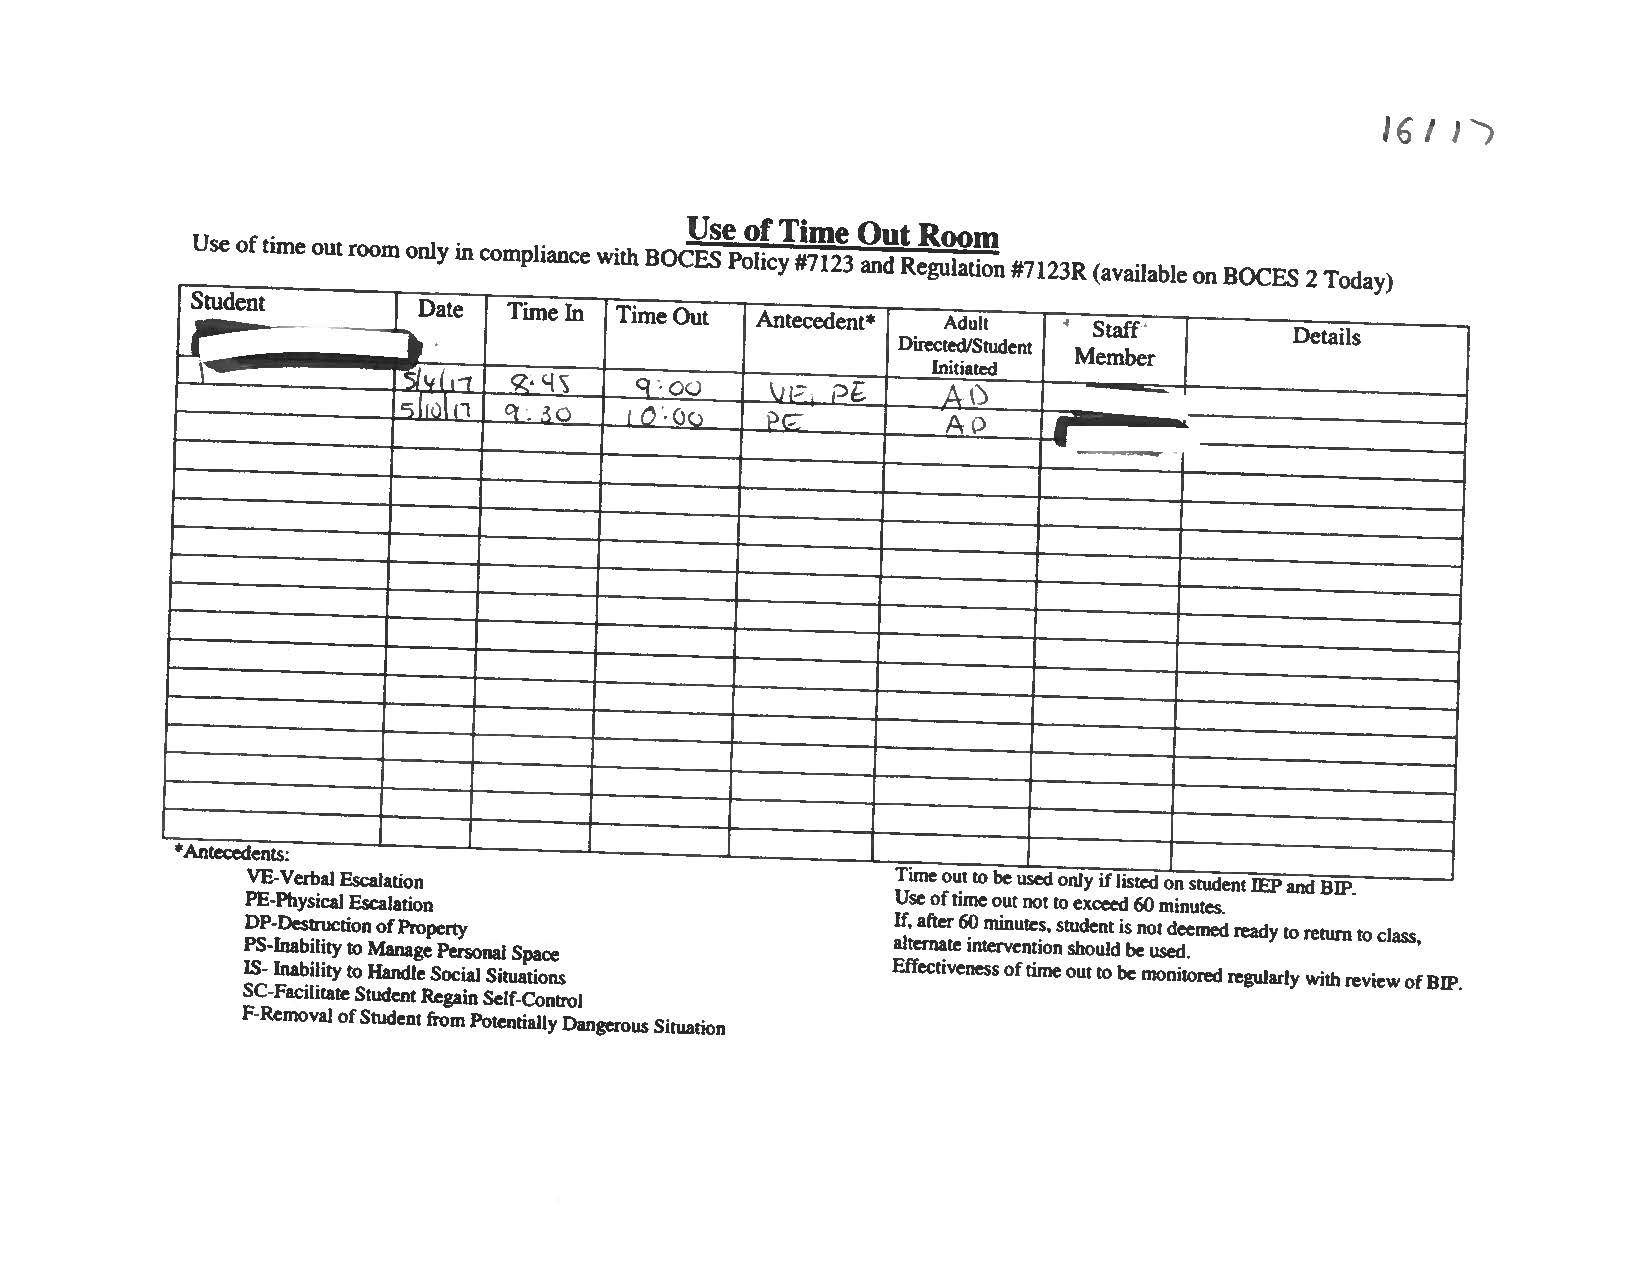 16/17
Use of Time Out Room
Use of time out room only in compliance with BOCES Policy #7123 and Regulation #7123R (available on BOCES 2 Today)
Student Date Time In Time Out Antecedent* Adult Directed/Student Initiated Staff Member Details
5/4/17 8:45 9:00 VE, PE AD
5/10/17 9:30 10:00 PE AD
*Antecedents:
VE-Verbal Escalation
PE-Physical Escalation
DP-Destruction of Property
PS-Inability to Manage Personal Space
IS- Inability to Handle Social Situations
SC-Facilitate Student Regain Self-Control
F-Removal of Student from Potentially Dangerous Situation
Time out to be used only if listed on student IEP and BIP.
Use of time out not to exceed 60 minutes.
If, after 60 minutes, student is not deemed ready to return to class,
alternate intervention should be used.
Effectiveness of time out to be monitored regularly with review of BIP.